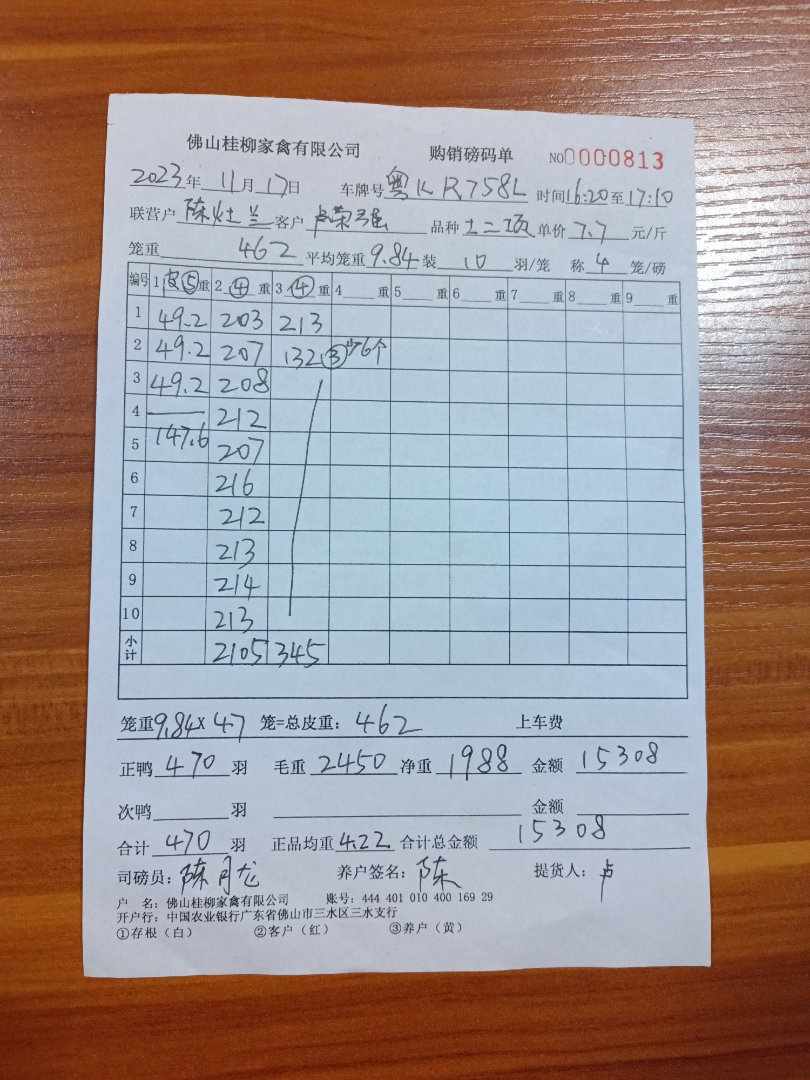 佛山桂柳家禽有限公司 购销磅码单 NO0000813
2023年 11月 17日 车牌号 粤KR758L 时间16:20至17:10
联营户 陈灶兰 客户 卢荣强 品种 土二项 单价 7.7 元/斤
笼重 462 平均笼重 9.84 装 10 羽/笼 称 4 笼/磅
编号 1 皮⑤重 2 ④ 重 3 ④ 重 4 重 5 重 6 重 7 重 8 重 9 重
1 49.2 203 213
2 49.2 207 132③少6个
3 49.2 208
4 212
5 147.6 207
6 216
7 212
8 213
9 214
10 213
小计 2105 345
笼重9.84×47 笼=总皮重: 462 上车费
正鸭 470 羽 毛重 2450 净重 1988 金额 15308
次鸭 羽 金额
合计 470 羽 正品均重 4.22 合计总金额 15308
司磅员: 陈月龙 养户签名: 陈 提货人: 卢
户 名: 佛山桂柳家禽有限公司 账号: 444 401 010 400 169 29
开户行: 中国农业银行广东省佛山市三水区三水支行
①存根(白) ②客户(红) ③养户(黄)